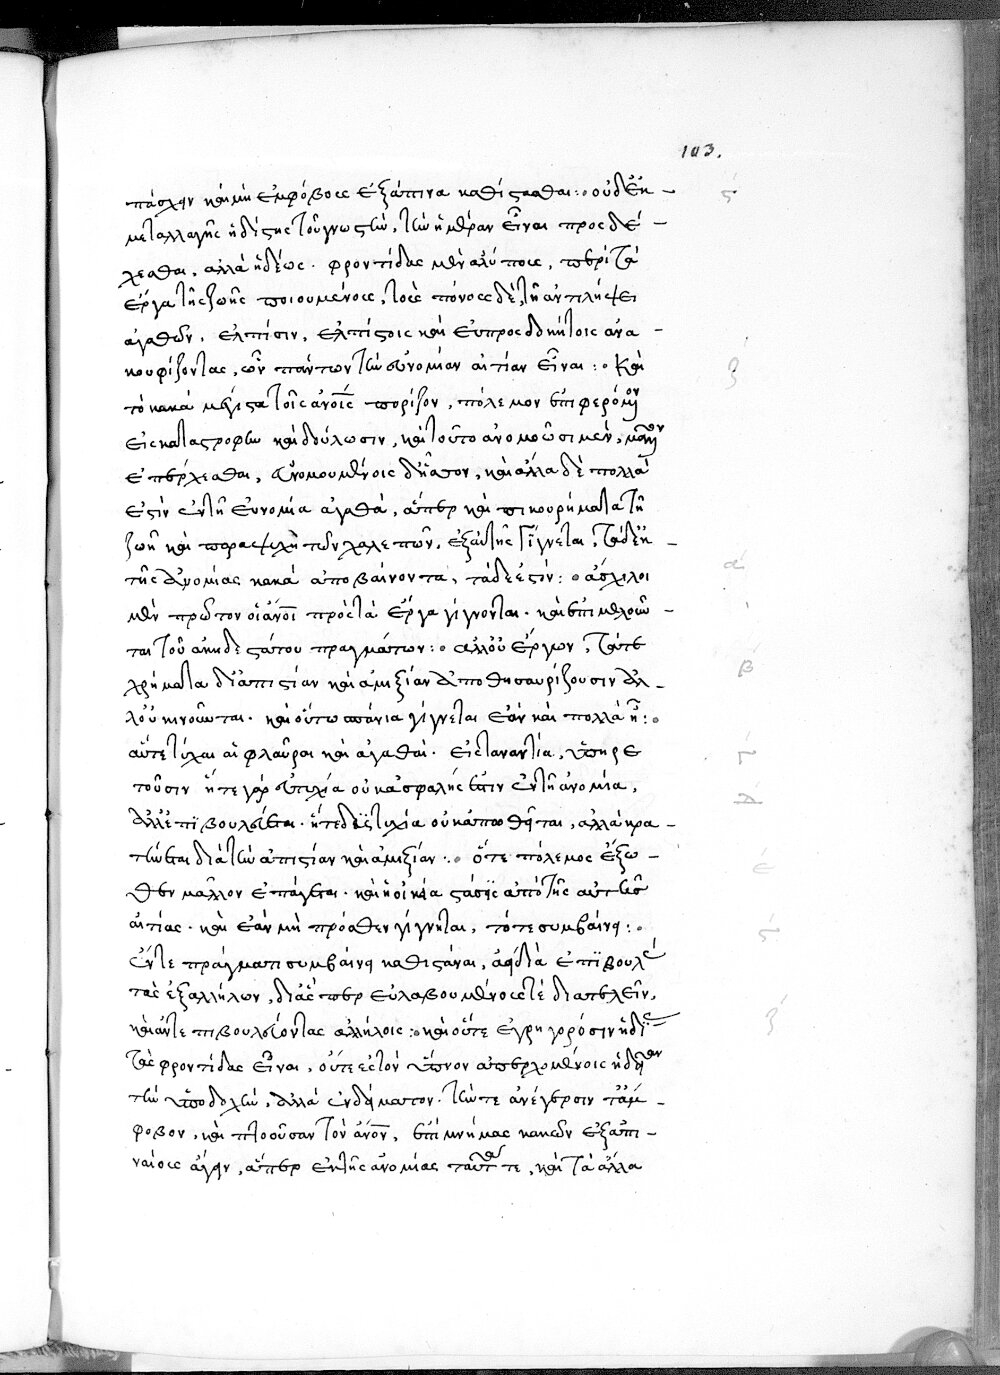 103.
πάσχειν καὶ μὴ ἐμφόβους ἐξάπινα καθίστασθαι: οὐδ' ἐκ –
μεταλλαγῆς ἡδίστης τοῦ γνωστὴν, τὴν ἡμέραν εἶναι προσδέ –
χεσθαι, ἀλλὰ ἡδέως. φροντίδας μὲν ἀλύπους, περὶ τὰ
ἔργα τῆς ζωῆς ποιουμένους, τοὺς πόνους δὲ, τῇ ἀντιλήψει
ἀγαθῶν, ἐλπίσιν, ἐλπίστοις καὶ εὐπροσδοκήτοις ἀνα –
κουφίζοντας, ὧν πάντων τὴν εὐνομίαν αἰτίαν εἶναι: Καὶ
τὸ κακὰ μέγιστα τοῖς ἀνοις πορίζον, πόλεμον ἐπιφερόμενον
εἰς καταστροφὴν καὶ δούλωσιν, καὶ τοῦτο ἀνομοῦσι μὲν, μᾶλλον
ἐπέρχεσθαι, εὐνομουμένοις δ' ἧσσον, καὶ ἄλλα δὲ πολλὰ
ἐστὶν ἐν τῇ εὐνομίᾳ ἀγαθὰ, ἅπερ καὶ ἐπικουρήματα τῇ
ζωῇ καὶ παραψυχὴ τῶν χαλεπῶν, ἐξ αὐτῆς γίγνεται, τὰ δ' ἐκ –
τῆς ἀνομίας κακὰ ἀποβαίνοντα, τάδε ἐστίν: ἄσχολοι
μὲν πρῶτον οἱ ἄνοι πρὸς τὰ ἔργα γίγνονται. καὶ ἐπιμελοῦν –
ται τοῦ ἀηδεστάτου πραγμάτων: ἀλλ' οὐ ἔργων, τά τε
χρήματα δι' ἀπιστίαν καὶ ἀμιξίαν ἀποθησαυρίζουσιν ἀλ –
λ' οὐ κινοῦνται. καὶ οὕτω σπάνια γίγνεται ἐὰν καὶ πολλὰ ᾖ:
αἵ τε τύχαι αἱ φλαῦραι καὶ ἀγαθαὶ. εἰς τἀναντία, ὑπηρε
τοῦσιν ἥ τε γὰρ εὐτυχία οὐκ ἀσφαλής ἐστιν ἐν τῇ ἀνομίᾳ,
ἀλλ' ἐπιβουλεύεται. ἥ τε δυστυχία οὐκ ἀπωθεῖται, ἀλλὰ κρα –
τύνεται διὰ τὴν ἀπιστίαν καὶ ἀμιξίαν: ὅ τε πόλεμος ἔξω –
θεν μᾶλλον ἐπάγεται. καὶ ἡ οἰκεία στάσις ἀπὸ τῆς αὐτῆς
αἰτίας. καὶ ἐὰν μὴ πρόσθεν γίγνηται, τότε συμβαίνει:
ἔν τε πράγμασι συμβαίνει καθιστάναι, ἀεὶ διὰ ἐπιβουλὰς
τὰς ἐξ ἀλλήλων, δι' ἅσπερ εὐλαβουμένους τε διατελεῖν,
καὶ ἀντεπιβουλεύοντας ἀλλήλοις: καὶ οὔτε ἐγρηγορόσιν ἡδείας
τὰς φροντίδας εἶναι, οὔτε ἐς τὸν ὕπνον ἀπερχομένοις ἡδεῖαν
τὴν ὑποδοχὴν, ἀλλὰ ἐνδείματον. τήν τε ἀνέγερσιν ἔμ –
φοβον, καὶ πτοοῦσαν τὸν ἄνον, ἐπὶ μνήμας κακῶν ἐξαπι –
ναίους ἄγειν, ἅπερ ἐκ τῆς ἀνομίας ταῦτά τε, καὶ τὰ ἄλλα
ς´
ζ
α´
β´
γ´
δ
ε´
ς´
ζ´